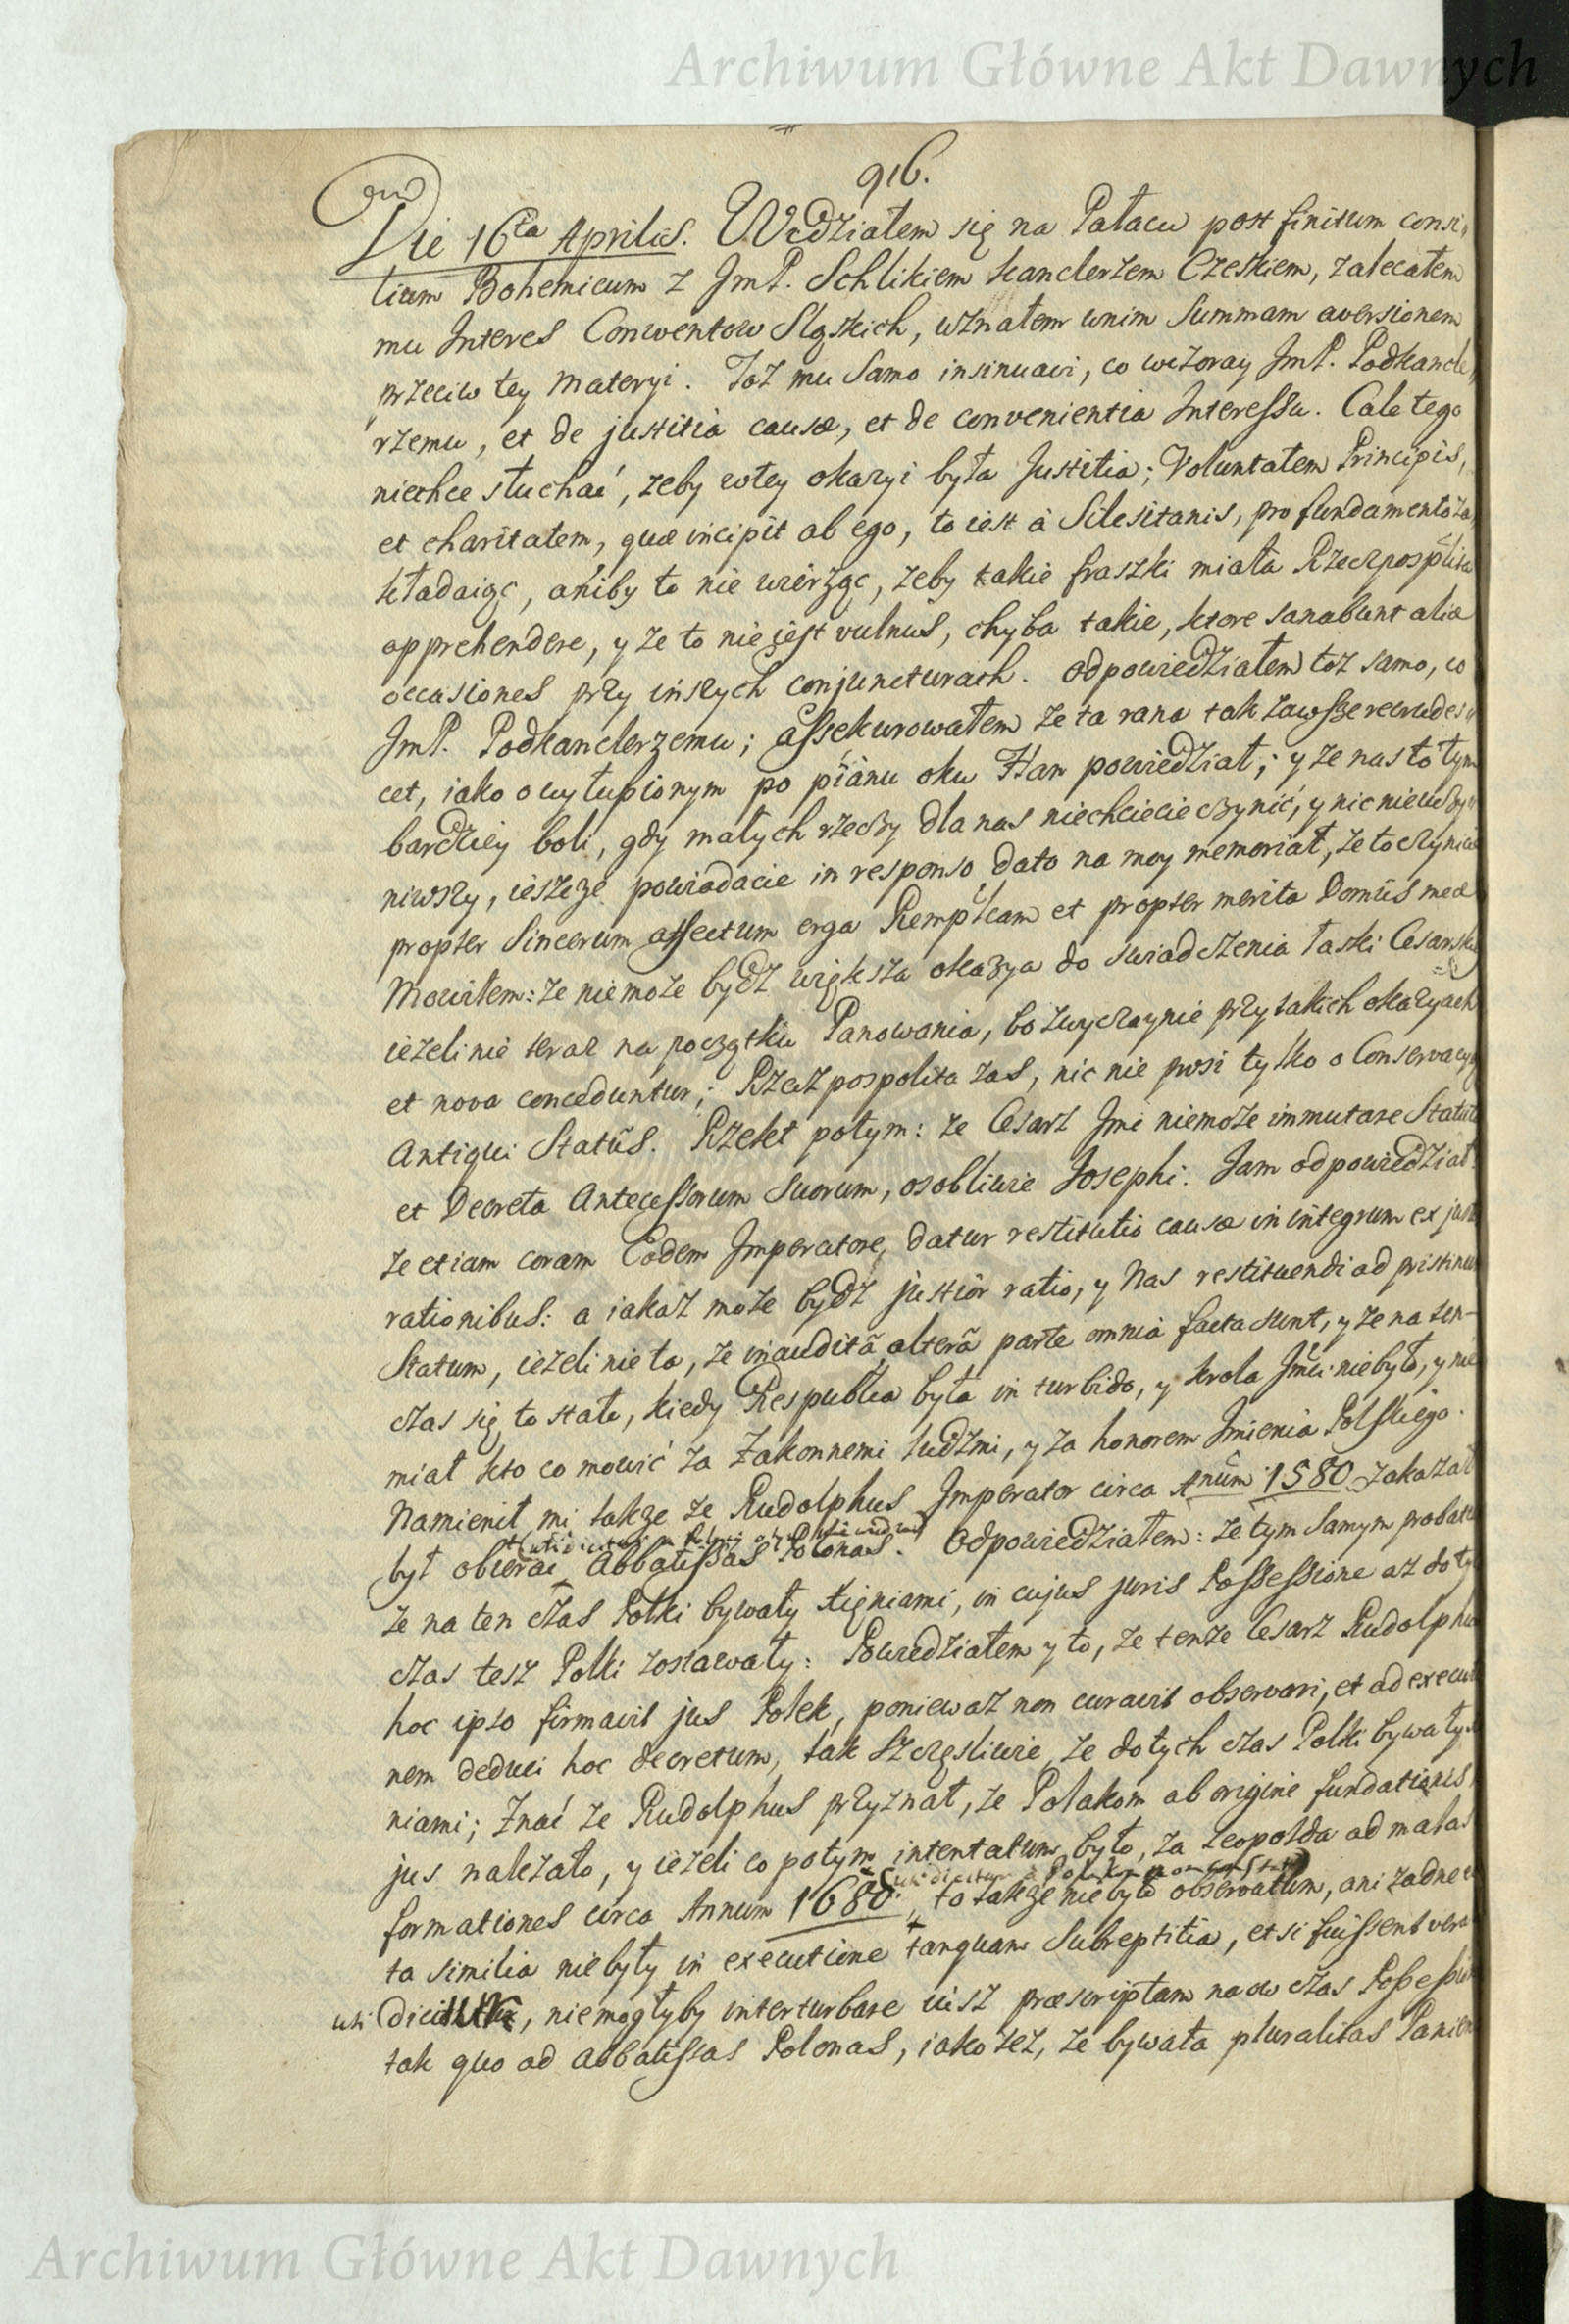 Archiwum Główne Akt Dawnych
916.
Die 16ta Aprilis. Widziałem się na Pałacu post finitum consi„
lium Bohemicum z JmP. Schlikiem kanclerzem Czeskiem, zalecałem
mu Interes Conwentow Sląskich, uznałem wnim Summam aversionem
przeciw tey materyi. Toż mu Samo insinuavi, co wczoray JmP. Podkancle„
rzemu, et de justitia causæ, et de convenientia Interessu. Cale tego
niechce słuchać, zeby wtey okazyi była Justitia; Voluntatem Principis,
et charitatem, quæ incipit ab ego, to iest à Silesitanis, pro fundamento za„
kładaiąc, aniby to nie wierząc, żeby takie fraszki miała Rzeczposplita
apprehendere, y ze to nie jest vulnus, chyba takie, ktore sanabunt aliæ
occasiones przy inszych conjuncturach. Odpowiedziałem toż samo, co
JmP. Podkanclerzemu; assekurowałem ze ta rana tak zawsze recrudes„
cet, iako o wyłupionym po piánu oku Han powiedział; y ze nas to tym
bardziey boli, gdy małych rzeczy dla nas niechcecie czynić, y nic nieuczy„
niwszy, ieszcze powiadacie in responso dato na moy memoriał, ze to czynicie
propter Sincerum affectum erga Rempłcam et propter merita Domûs meæ
Mowiłem: ze niemoże bydz większa okazya do swiadczenia łaski Cesarskiey
ieżeli nie teraz na początku Panowania, bo zwyczaynie przy takich okazyach
et nova conceduntur; Rzeczpospolita zas, nic nie prosi tylko o Conservacyą
Antiqui Statûs. Rzekł potym: ze Cesarz Jmć niemoże immutare Statuta
et Decreta Antecessorum Suorum, osobliwie Josephi. Jam odpowiedział:
ze etiam coram Eodem Imperatore, datur restitutio causæ in integrum ex justis
rationibus: a iakaż może bydz justior ratio, y Nas restituendi ad pristinum
Statum, ieżeli nie ta, ze inauditâ alterâ parte omnia facta sunt, y ze na ten-
czas się to stało, kiedy Respublica była in turbido, y krola Jmci niebyło, y nie
miał kto co mowić za Zakonnemi ludzmi, y za honorem Imienia Polskiego.
Namienił mi takze ze Rudolphus Imperator circa Anum 1580 zakazał
był obierać Abbatissas Polonas. Odpowiedziałem: ze tym Samym probatur
ze na ten czas Polki bywały Xięniami, in cujus juris Possessione aż do tych
czas tesz Polki zostawały: Powiedziałem y to, ze tenże Cesarz Rudolphus
hoc ipso firmavit jus Polek, ponieważ non curavit observari, et ad executio
nem deduci hoc decretum, tak szczęsliwie, ze dotych czas Polki bywały
niami; Znać ze Rudolphus przyznał, ze Polakom ab origine fundationis
jus należało, y ieżeli co potym intentatum było, za Leopolda ad malas
uti dicitur
formationes circa Annum 1680. to takze niebyło observatum, ani żadne
ta similia niebyły in executione tanquam Subreptitia, et si fuissent vera
uti dicitur, niemogłyby interturbare iusz præscriptam naowczas Possessionem
tak quo ad abbatissas Polonas, iako też, ze bywała pluralitas Panien
Archiwum Główne Akt Dawnych